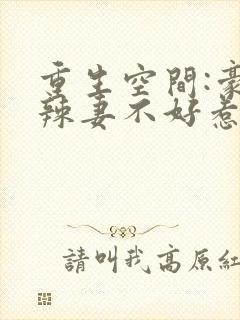 重生空間:豪
辣妻不好惹
請叫我高原紅